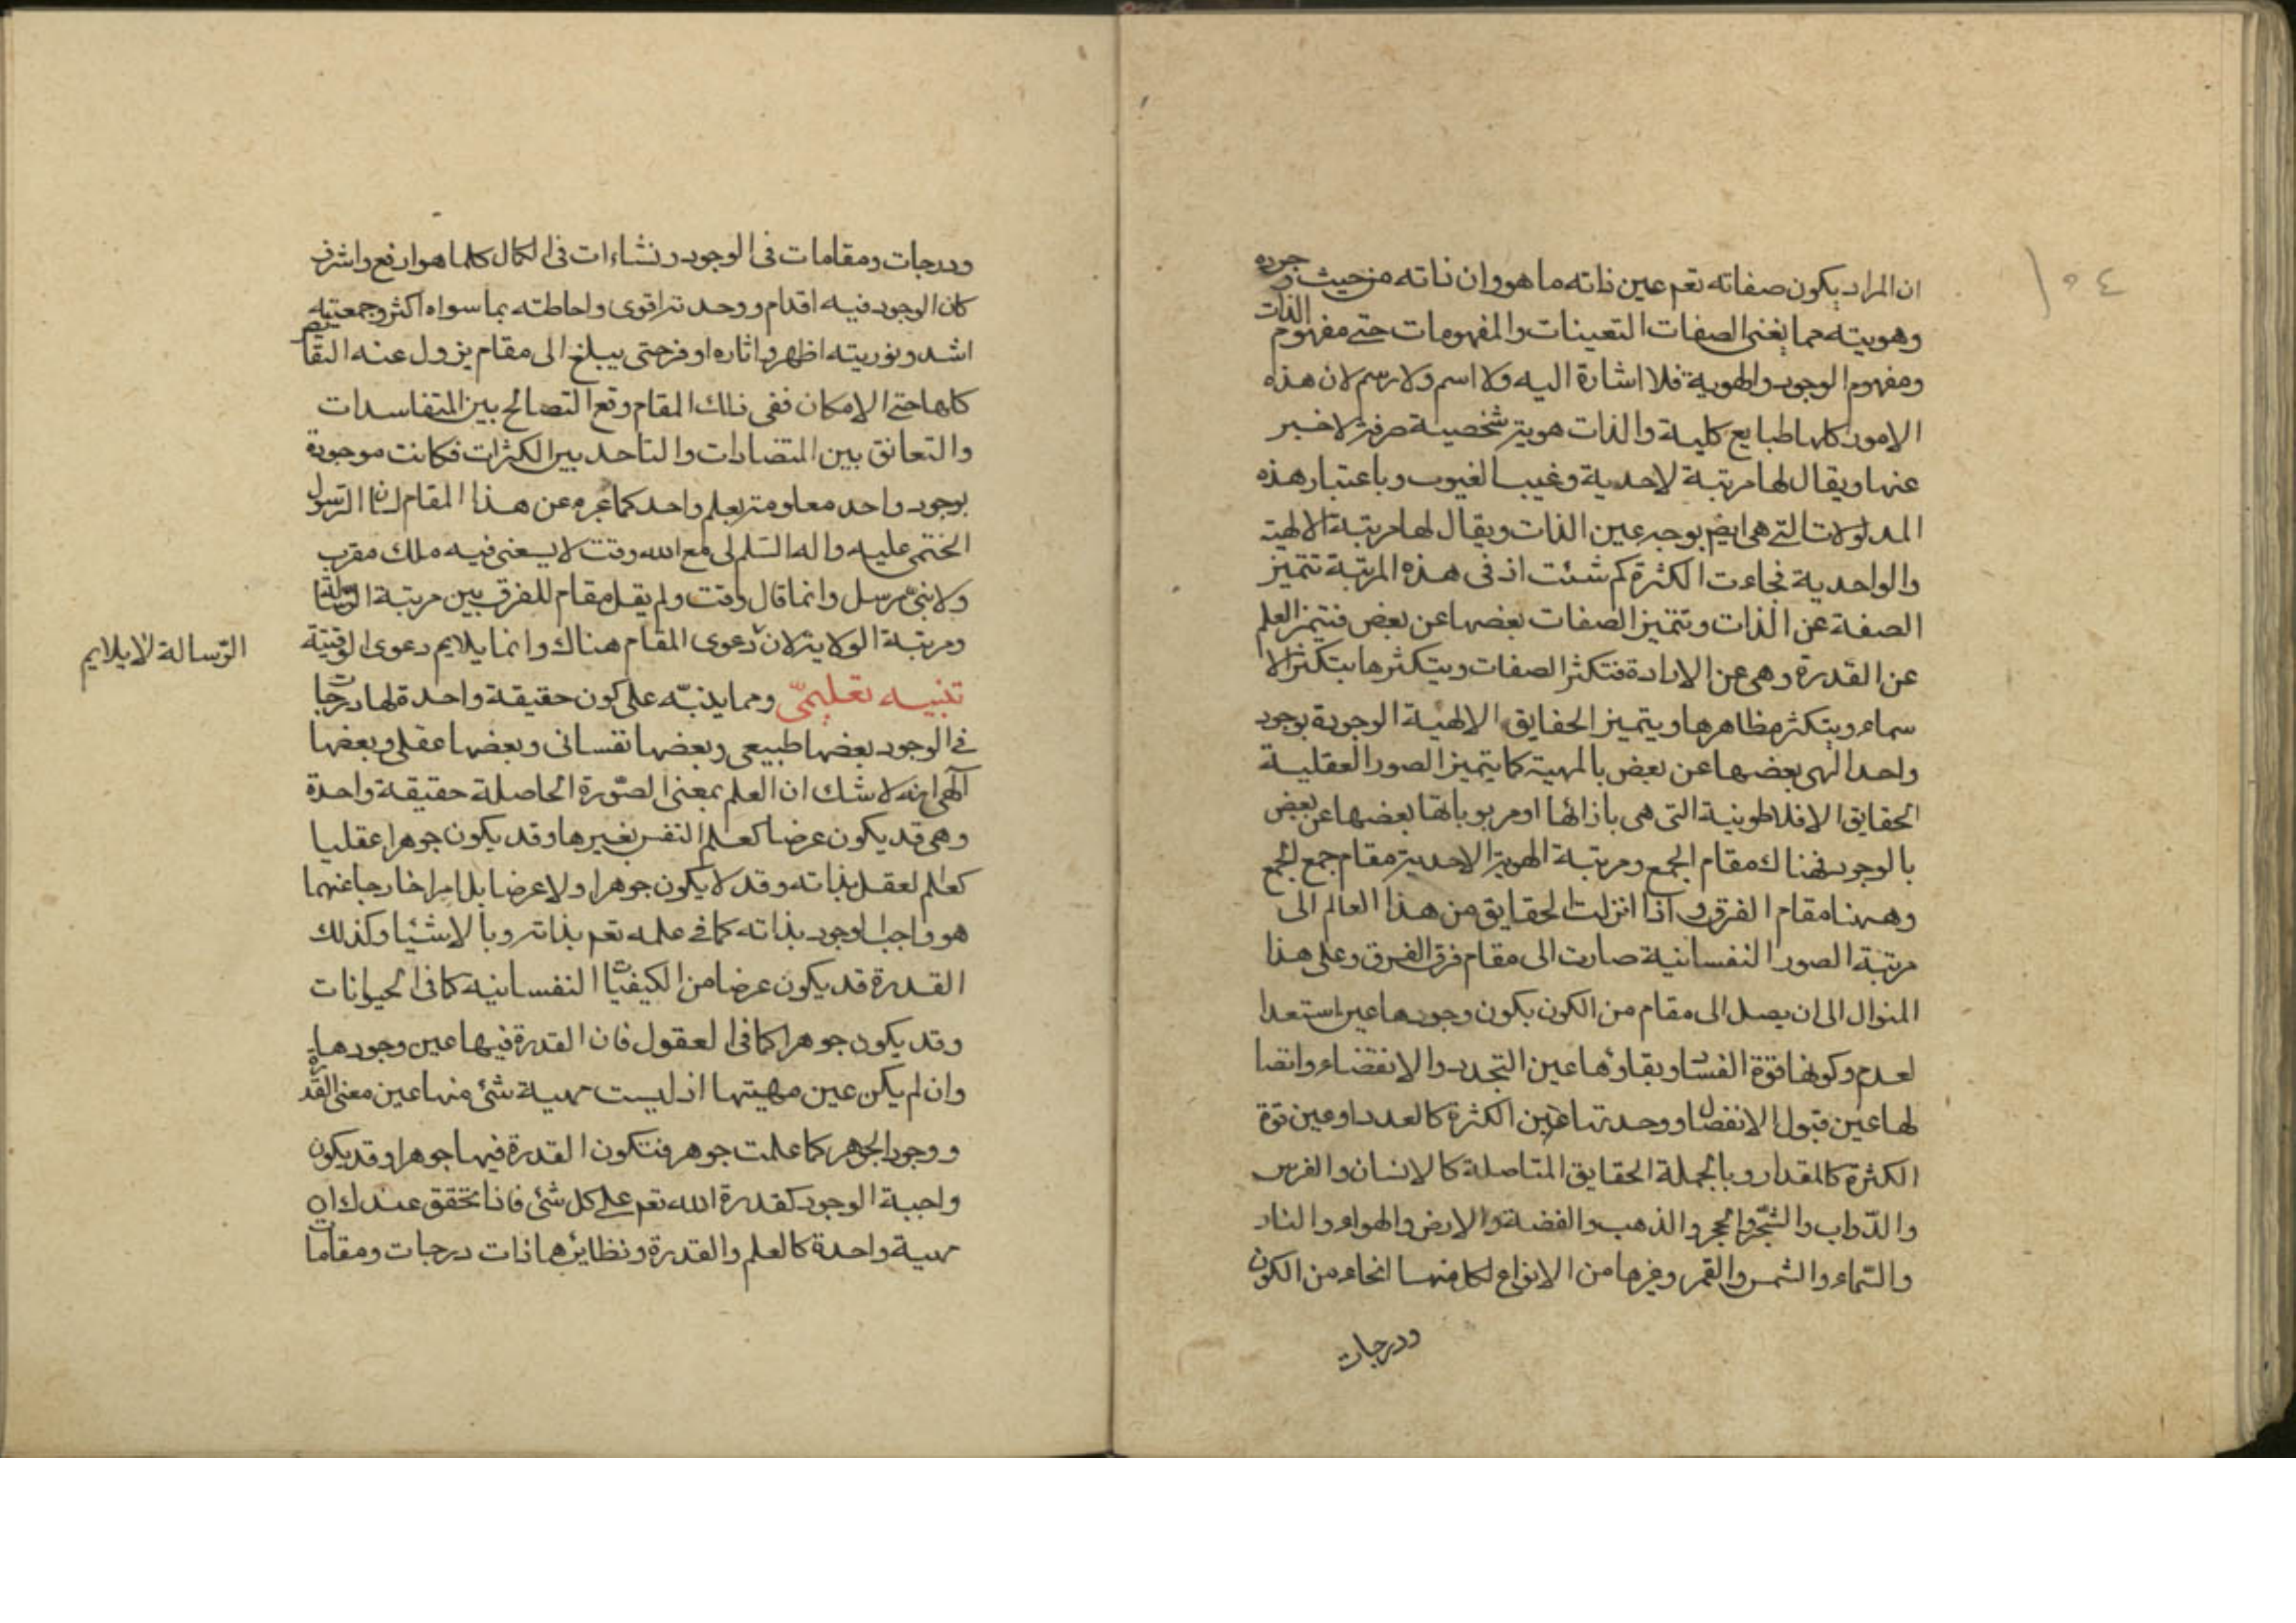 ١٥٤
ان المراد بكون صفاته تعم عين ذاته ما هو وان ذاته من حيث وجوده
وهويته مما يغنى الصفات التعينات والمفهومات حتى مفهوم الذات
ومفهوم الوجود والهوية فلا اشارة اليه ولا اسم ولا رسم لان هذه
الامور كلها طبايع كلية والذات هوية شخصية صرفة لا خبر
عنها ويقال لها مرتبة الاحدية وغيب الغيوب وباعتبار هذه
المدلولات التى هى ايض بوجه عين الذات ويقال لها مرتبة الالهية
والواحدية فجاءت الكثرة كم شئت اذ فى هذه المرتبة تتميز
الصفة عن الذات وتتميز الصفات بعضها عن بعض فتيميز العلم
عن القدرة وهى عن الارادة فتتكثر الصفات ويتكثرها يتكثر الا
سماء ويتكثر مظاهرها ويتميز الحقايق الالهية الوجودة بوجود
واحد الهى بعضها عن بعض بالمهية كما يتميز الصور العقلية
الحقايق الافلاطونية التى هى بازائها او مربوباتها بعضها عن بعض
بالوجود فهناك مقام الجمع ومرتبة الهوية الاحدية مقام جمع الجمع
وههنا مقام الفرق واذا انزلت الحقايق من هذا العالم الى
مرتبة الصور النفسانية صارت الى مقام فرق الفرق وعلى هذا
المنوال الى ان يصل الى مقام من الكون يكون وجودها عين استعدا
لعدم وكونها قوة الفساد وبقاؤها عين التجدد والانقضاء واتصا
لها عين قبول الانفصال ووحدتها عين الكثرة كالعدد او عين قوة
الكثرة كالمقدار وبالجملة الحقايق المتاصلة كالانسان والفرس
والدّواب والشّجر والحجر والذهب والفضة والارض والهواء والنار
والسّماء والشمس والقمر وغيرها من الانواع لكل منها انحاء من الكون
ودرجات
ودرجات ومقامات فى الوجود ونشاءات فى الكمال كلما هو ارفع واشرف
كان الوجود فيه اقدم ووحدته اقوى واحاطته بما سواه اكثر وجمعيته
اشد ونوريته اظهر واثاره اوفر حتى يبلغ الى مقام يزول عنه النقايص
كلها حتى الامكان ففى ذلك المقام وقع التصالح بين المتفاسدات
والتعانق بين المتضادات والتاحد بين الكثرات فكانت موجودة
بوجود واحد معلومة بعلم واحد كما عبره عن هذا المقام لسان الرّسول
الختمى عليه واله السّلم لى مع الله وقت لا يسعنى فيه ملك مقرب
ولا نبىّ مرسل وانما قال وقت ولم يقل مقام للفرق بين مرتبة الرّسالة
ومرتبة الولاية لان دعوى المقام هناك وانما يلايم دعوى الوقتية
الرّسالة لا يلايم
تنبيه تعليمىّ ومما ينبّه على كون حقيقة واحدة لها درجات
فى الوجود بعضها طبيعى وبعضها نفسانى وبعضها عقلى وبعضها
الٓهى انه لا شك ان العلم بمعنى الصّورة الحاصلة حقيقة واحدة
وهى قد يكون عرضا كعلم النفس بغيرها وقد يكون جوهرا عقليا
كعلم لعقل بذاته وقد لا يكون جوهرا ولا عرضا بل امرا خارجا عنهما
هو واجب لوجود بذاته كما فى علمه تعم بذاته وبالاشيا وكذلك
القدرة قد يكون عرضا من الكيفيات النفسانيه كما فى الحيوانات
وقد يكون جوهرا كما فى العقول فان القدرة فيها عين وجودها
وان لم يكن عين مهيتها اذ ليست مهية شئ منها عين معنى القدرة
ووجود الجوهر كما علمت جوهر فتكون القدرة فيها جوهرا وقد يكون
واجبة الوجود كقدرة الله تعم على كل شئ فاذا تحقق عندك ان
مهية واحدة كالعلم والقدرة ونظايرها ذات درجات ومقامات